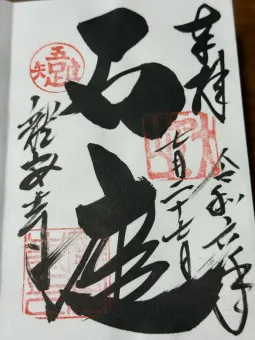 奉拝
令和六年
七月二十七日
石庭
吾唯足知
龍安寺